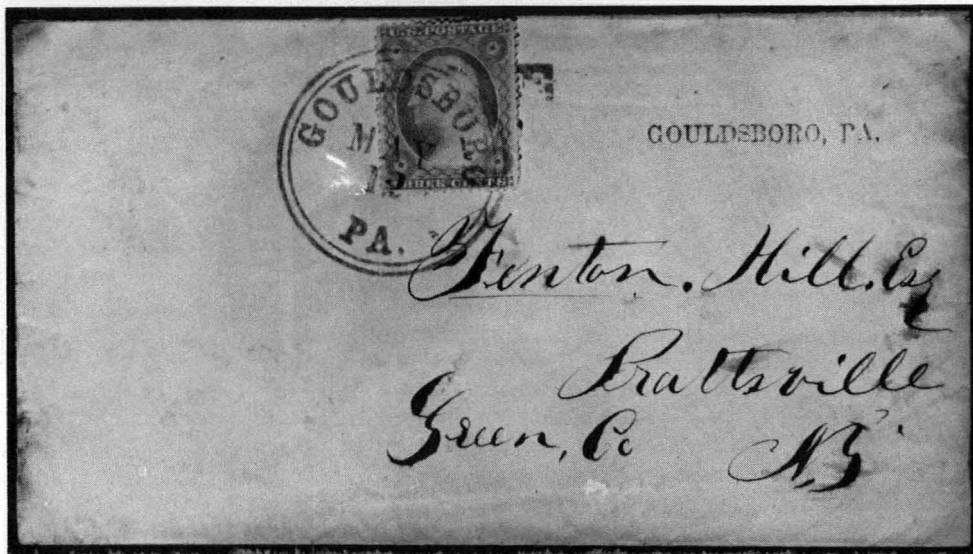 U.S. POSTAGE
THREE CENTS
GOULDSBORO
MAY
PA.
GOULDSBORO, PA.
Fenton. Hill. Esq
Prattsville
Green, Co N.Y